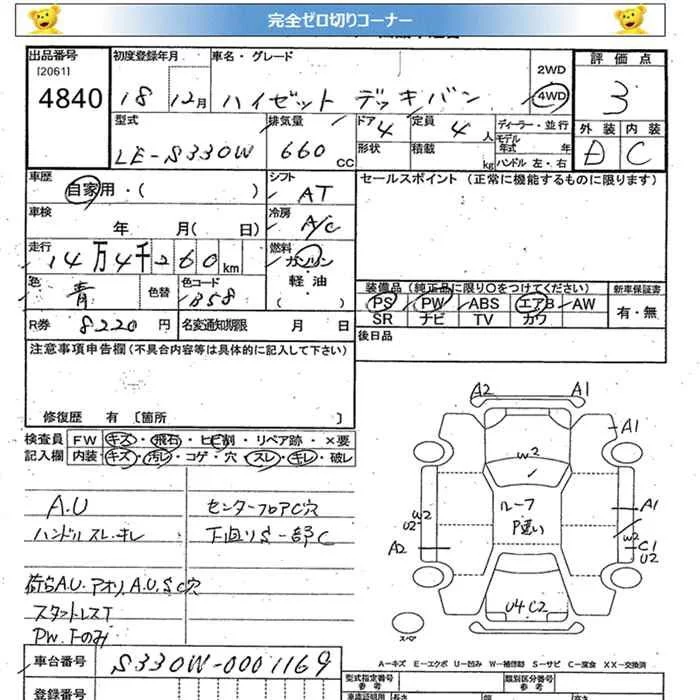 完全ゼロ切りコーナー
出品番号
[2061]
4840
初度登録年月
18 12月
車名・グレード
ハイゼット デッキバン
2WD
4WD
評価点
3
外装 内装
D C
型式
LE-S330W
排気量
660
CC
ドア
4
定員
4
人
形状
積載
kg
ディーラー・並行
モデル
年式 年
ハンドル 左・右
車歴
自家用・( )
シフト
AT
セールスポイント (正常に機能するものに限ります)
車検
年 月( 日)
冷房
A/C
走行
14万4千260 km
燃料
ガソリン
軽油
( )
色
青
色替
色コード
B58
装備品 (純正品に限り〇をつけてください)
新車保証書
PS PW ABS エアB AW
SR ナビ TV カワ
有・無
R券
8220 円
名変通知期限 月 日
後日品
注意事項申告欄 (不具合内容等は具体的に記入して下さい)
修復歴 有 〔箇所 〕
検査員
記入欄
FW キズ・飛石・ヒビ割・リペア跡・×要
内装 キズ・汚レ・コゲ・穴・スレ・キレ・破レ
A.U
ハンドルスレ.キレ
荷台A.U.アオリ.A.U.S.C穴
スタットレスT
PW.Fのみ
センターフロアC穴
下回りS一部C
A2 A1
A1
W2
ルーフ
W2
U2
A2
A1
W2
C1
U2
U4 C2
スペア
A-キズ E-エクボ U-凹み W-補修跡 S-サビ C-腐食 XX-交換済
車台番号
S330W-0001169
登録番号
型式指定番号
参考
類別区分番号
参考
長さ
幅
高さ